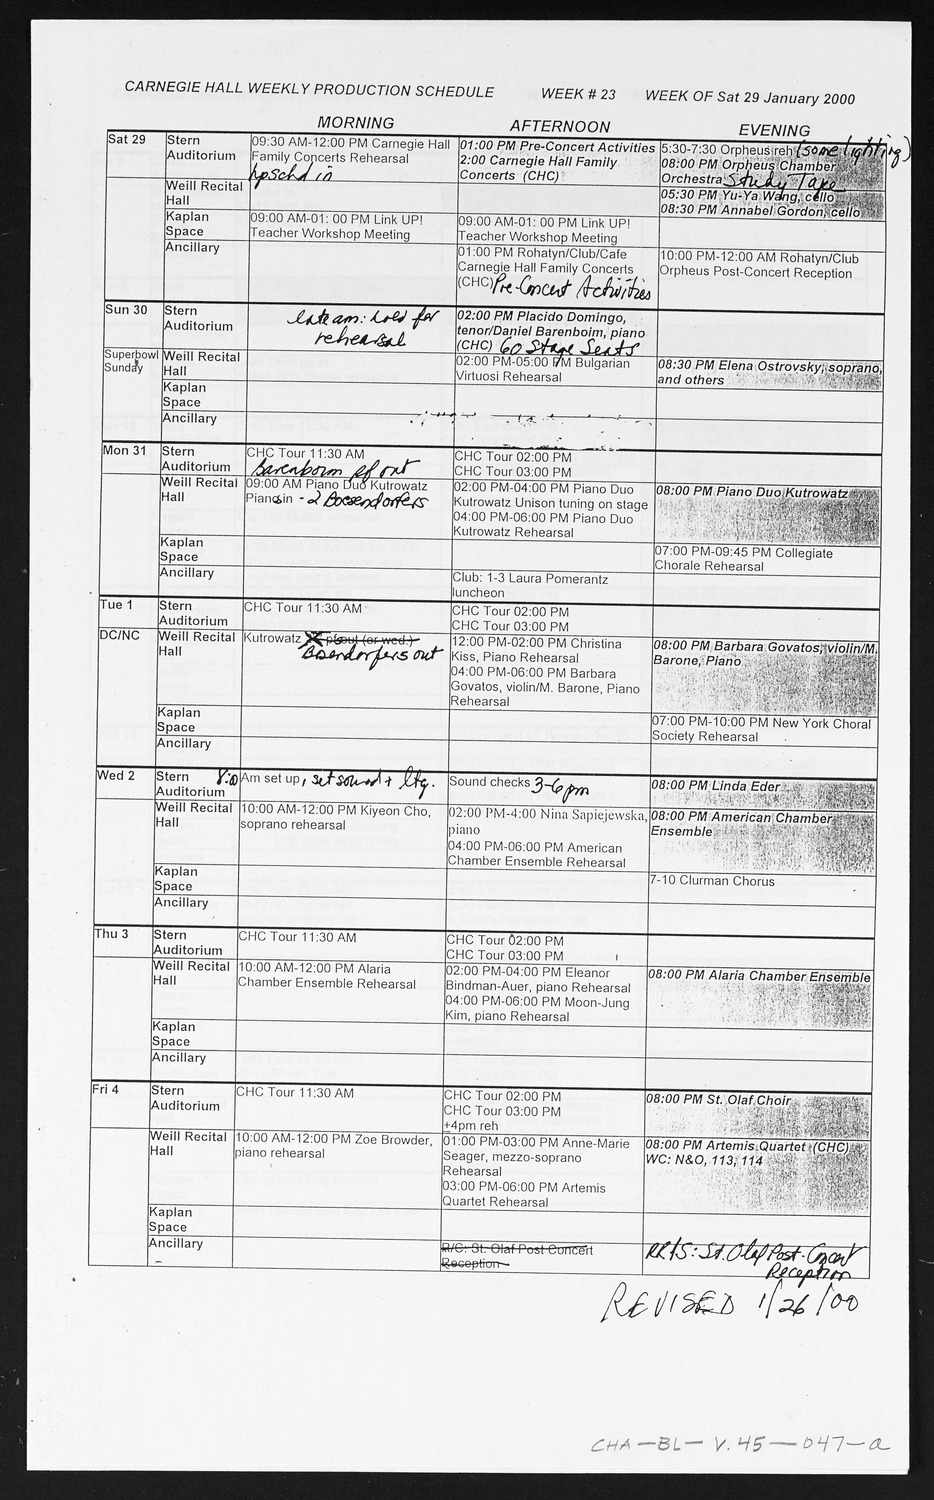 CARNEGIE HALL WEEKLY PRODUCTION SCHEDULE WEEK # 23 WEEK OF Sat 29 January 2000
MORNING AFTERNOON EVENING
Sat 29
Stern
Auditorium
09:30 AM-12:00 PM Carnegie Hall
Family Concerts Rehearsal
hpschd in
01:00 PM Pre-Concert Activities
2:00 Carnegie Hall Family
Concerts (CHC)
5:30-7:30 Orpheus reh (some lighting)
08:00 PM Orpheus Chamber
Orchestra Study Tape
Weill Recital
Hall
05:30 PM Yu-Ya Wang, cello
08:30 PM Annabel Gordon, cello
Kaplan
Space
09:00 AM-01: 00 PM Link UP!
Teacher Workshop Meeting
09:00 AM-01: 00 PM Link UP!
Teacher Workshop Meeting
Ancillary
01:00 PM Rohatyn/Club/Cafe
Carnegie Hall Family Concerts
(CHC) Pre-Concert Activities
10:00 PM-12:00 AM Rohatyn/Club
Orpheus Post-Concert Reception
Sun 30
Stern
Auditorium
late am: hold for
rehearsal
02:00 PM Placido Domingo,
tenor/Daniel Barenboim, piano
(CHC) 60 Stage Seats
Superbowl
Sunday
Weill Recital
Hall
02:00 PM-05:00 PM Bulgarian
Virtuosi Rehearsal
08:30 PM Elena Ostrovsky, soprano,
and others
Kaplan
Space
Ancillary
Mon 31
Stern
Auditorium
CHC Tour 11:30 AM
Barenboim pf out
CHC Tour 02:00 PM
CHC Tour 03:00 PM
Weill Recital
Hall
09:00 AM Piano Duo Kutrowatz
Pianos in - 2 Bosendorfers
02:00 PM-04:00 PM Piano Duo
Kutrowatz Unison tuning on stage
04:00 PM-06:00 PM Piano Duo
Kutrowatz Rehearsal
08:00 PM Piano Duo Kutrowatz
Kaplan
Space
07:00 PM-09:45 PM Collegiate
Chorale Rehearsal
Ancillary
Club: 1-3 Laura Pomerantz
luncheon
Tue 1
Stern
Auditorium
CHC Tour 11:30 AM
CHC Tour 02:00 PM
CHC Tour 03:00 PM
DC/NC
Weill Recital
Hall
Kutrowatz out (or wed.)
Bosendorfers out
12:00 PM-02:00 PM Christina
Kiss, Piano Rehearsal
04:00 PM-06:00 PM Barbara
Govatos, violin/M. Barone, Piano
Rehearsal
08:00 PM Barbara Govatos, violin/M.
Barone, Piano
Kaplan
Space
07:00 PM-10:00 PM New York Choral
Society Rehearsal
Ancillary
Wed 2
Stern
Auditorium
8:00 Am set up, set sound + ltg.
Sound checks 3-6pm
08:00 PM Linda Eder
Weill Recital
Hall
10:00 AM-12:00 PM Kiyeon Cho,
soprano rehearsal
02:00 PM-4:00 Nina Sapiejewska,
piano
04:00 PM-06:00 PM American
Chamber Ensemble Rehearsal
08:00 PM American Chamber
Ensemble
Kaplan
Space
7-10 Clurman Chorus
Ancillary
Thu 3
Stern
Auditorium
CHC Tour 11:30 AM
CHC Tour 02:00 PM
CHC Tour 03:00 PM
Weill Recital
Hall
10:00 AM-12:00 PM Alaria
Chamber Ensemble Rehearsal
02:00 PM-04:00 PM Eleanor
Bindman-Auer, piano Rehearsal
04:00 PM-06:00 PM Moon-Jung
Kim, piano Rehearsal
08:00 PM Alaria Chamber Ensemble
Kaplan
Space
Ancillary
Fri 4
Stern
Auditorium
CHC Tour 11:30 AM
CHC Tour 02:00 PM
CHC Tour 03:00 PM
+4pm reh
08:00 PM St. Olaf Choir
Weill Recital
Hall
10:00 AM-12:00 PM Zoe Browder,
piano rehearsal
01:00 PM-03:00 PM Anne-Marie
Seager, mezzo-soprano
Rehearsal
03:00 PM-06:00 PM Artemis
Quartet Rehearsal
08:00 PM Artemis Quartet (CHC)
WC: N&O, 113, 114
Kaplan
Space
Ancillary
R/C: St. Olaf Post Concert
Reception
RR/S: St. Olaf Post-Concert
Reception
REVISED 1/26/00
CHA-BL-V.45-047-a